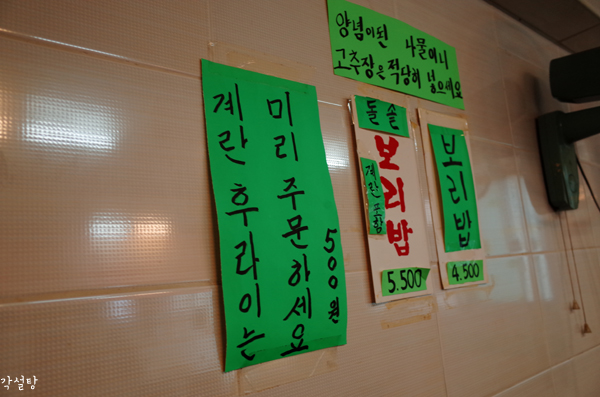 양념이된 나물이니
고추장은 적당히 넣으세요
계란 후라이는
미리 주문하세요
500원
돌솥
보리밥
계란 포함
5.500
보리밥
4.500
각설탕